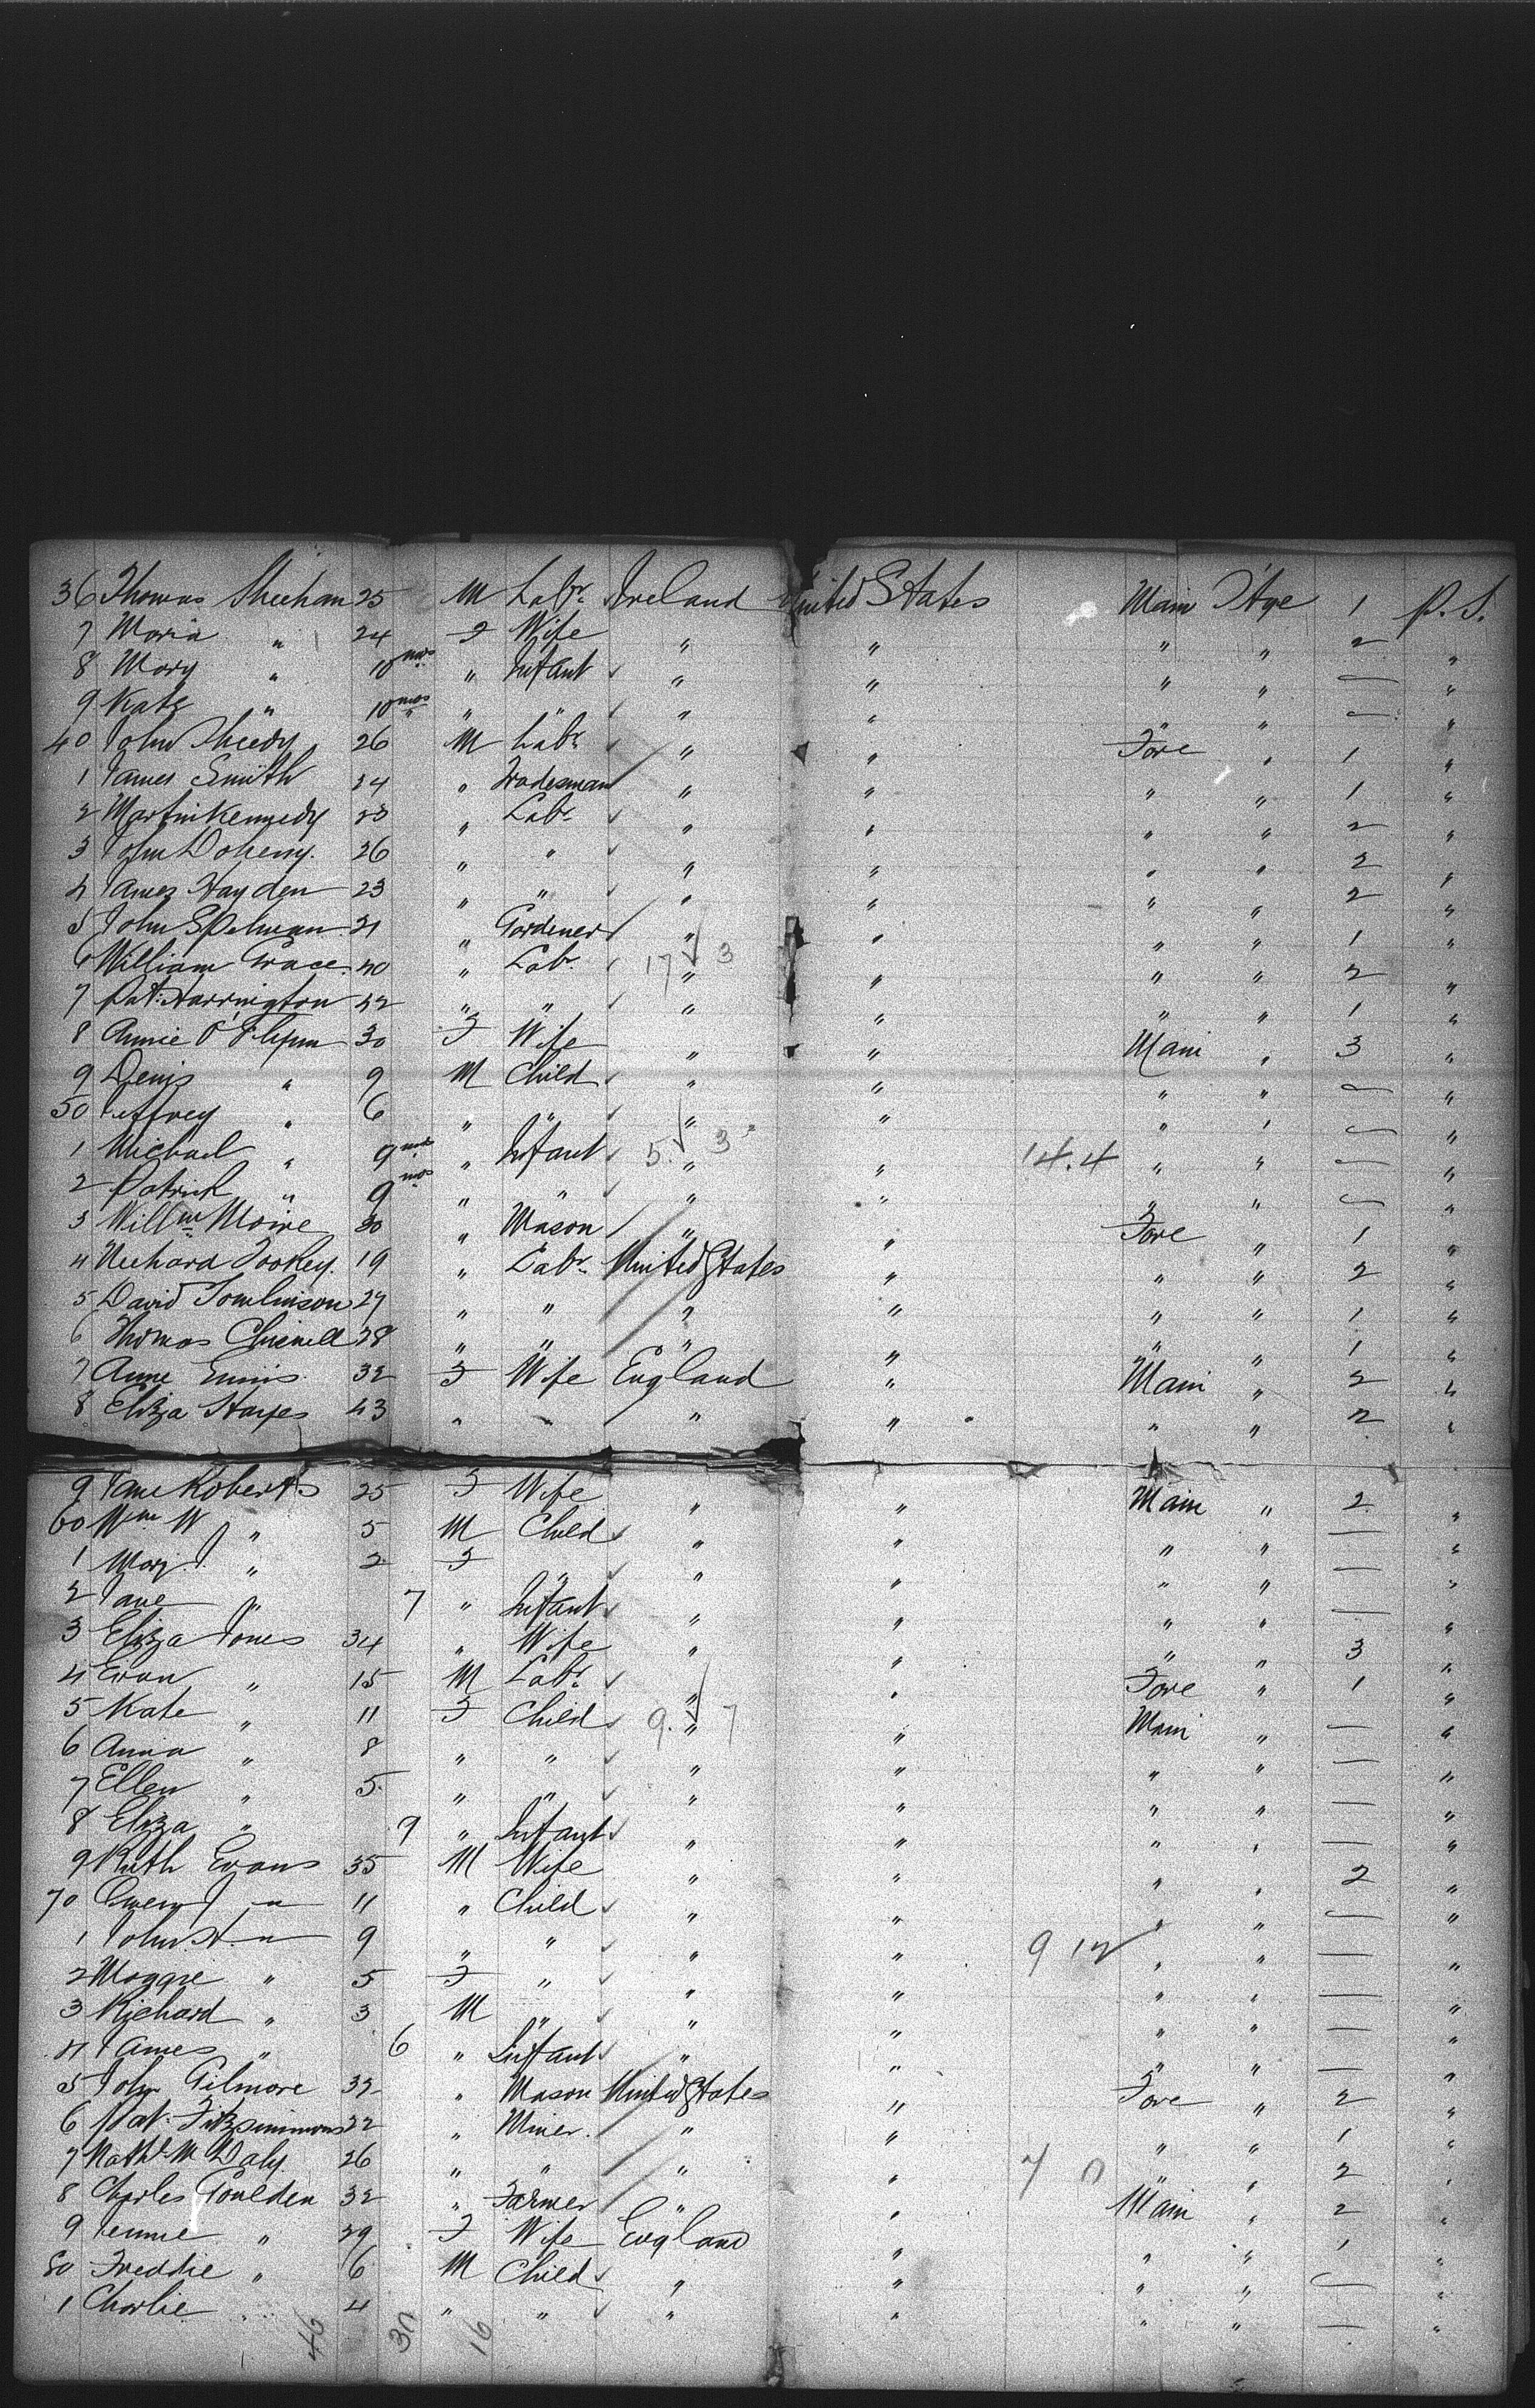 36 Thomas Sheehan 25 M Labr. Ireland United States Main Stge 1 P. S.
7 Maria " 24 F Wife " " " " 2 "
8 Mary " 10 mos " Infant " " " " — "
9 Kate " 10 mos " " " " " " — "
40 John Sheedy 26 M Labr " " Fore " 1 "
1 James Smith 24 " Tradesman " " " " 1 "
2 Martin Kennedy 23 " Labr " " " " 2 "
3 John Doheny. 26 " " " " " " 2 "
4 James Hayden 23 " " " " " " 2 "
5 John Spelman 21 " Gardener " " " " 1 "
6 William Grace 40 " Labr 17 3 " " " " 2 "
7 Pat. Harrington 42 " " " " " " 1 "
8 Annie O'Flynn 30 F Wife " " Main " 3 "
9 Denis " 9 M Child " " " " — "
50 Jeffrey " 6 " " " " " " — "
1 Michael " 9 mos " Infant 5. 3 " " 14.4 " " — "
2 Patrick " 9 mos " " " " " " — "
3 Willm Moire 30 " Mason " " Fore " 1 "
4 Richard Tookey. 19 " Labr. United States " " " 2 "
5 David Tomlinson 27 " " " " " " 1 "
6 Thomas Chisnell 28 " " " " " " 1 "
7 Anne Ennis 32 F Wife England " Main " 2 "
8 Eliza Hayes 43 " " " " " " 2 "
9 Jane Roberts 25 F Wife " " Main " 2 "
60 Wm W " 5 M Child " " " " — "
1 Mary J " 2 F " " " " " — "
2 Jane " 7 " Infant " " " " — "
3 Eliza Jones 34 " Wife " " " " 3 "
4 Evan " 15 M Labr. " " Fore " 1 "
5 Kate " 11 F Child 9. 7 " " Main " — "
6 Anna " 8 " " " " " " — "
7 Ellen " 5 " " " " " " — "
8 Eliza " 9 " Infant " " " " — "
9 Ruth Evans 35 M Wife " " " " 2 "
70 Owen J " 11 " Child " " " " — "
1 John H. " 9 " " " " 9 12 " " — "
2 Maggie " 5 F " " " " " — "
3 Richard " 3 M " " " " " — "
4 James " 6 " Infant " " " " — "
5 John Gilmore 32 " Mason United States " Fore " 2 "
6 Pat. Fitzsimmons 22 " Miner. " " " " 1 "
7 Nathl McDaly. 26 " " " " 7 0 " " 2 "
8 Charles Goulden 32 " Farmer " " Main " 2 "
9 Jennie " 29 F Wife England " " " 1 "
80 Freddie " 6 M Child " " " " — "
1 Charlie " 4 " " " " " " — "
46 30 16